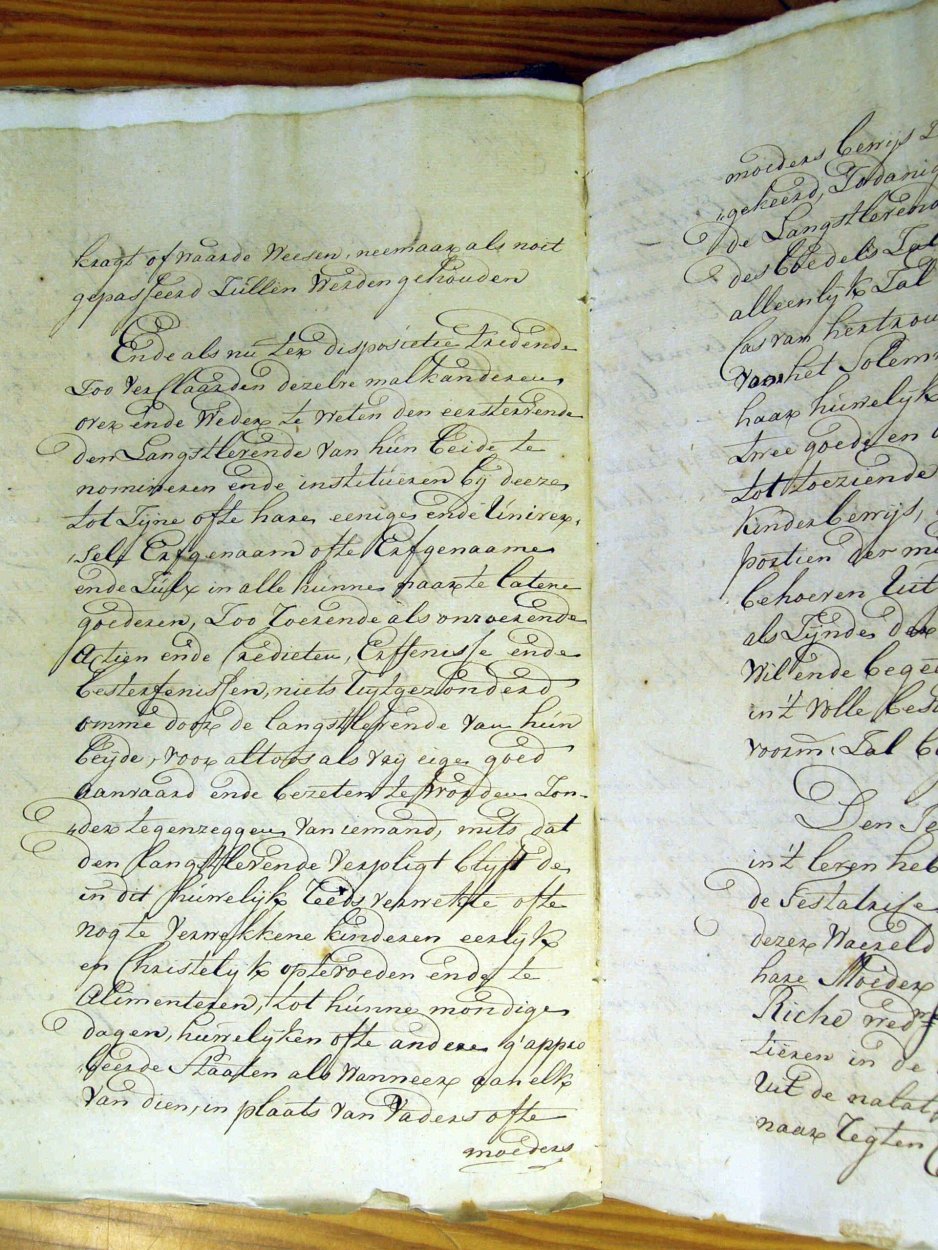 kragt of waarde Weesen, neemaar als noit
gepasseerd Zullen Werden gehouden
Ende als nu ter disposietie tredende
Zoo verklaarden dezelve malkanderen
over ende Weder te weten den eerstervende
den Langstlevende van hun beide te
nomineren ende institueren bij deeze
tot Zyne ofte hare eenige ende Univer„
„Sele Erfgenaam ofte Erfgenaame
ende Zulx in alle hunne naar te latene
goederen, Zoo Roerende als onroerende
Actien ende Credieten, Erffenisse ende
besterfenissen, niets uytgezonderd
omme door de langstlevende van hun
beyde, voor altoos als vry eige goed
aanvaard ende bezeten te worden Zon„
„der tegenzeggen van iemand, mits dat
den langstlevende verpligt blyft de
in dit huwelijk reeds verwekte ofte
nog te verwekkene kinderen eerlijk
en Christelyk opte voeden ende te
Alimenteren, tot hunne mondige
dagen, huwelijken ofte andere g'appro
beerde Staaten als wanneer aan elk
van dien, in plaats van Vaders ofte
moeders
moeders bewijs
„gekeerd, Zodanig
de Langstlevend
des boedels Zal
alleenlijk Zal
Cas van hertrou
voor het Solemn
haar huwelijk
twee goede en
tot toeziende
Kinder bewijs,
portien der mi
behoeren Uit
als Zynde der
Wil ende begee
in't volle bes
voorm: Zal
Den Te
in't leven heb
de Testatrice
dezer Waereld
hare Moeder
Riche wed:
tieren in de
Uit de nalat
naar Regten